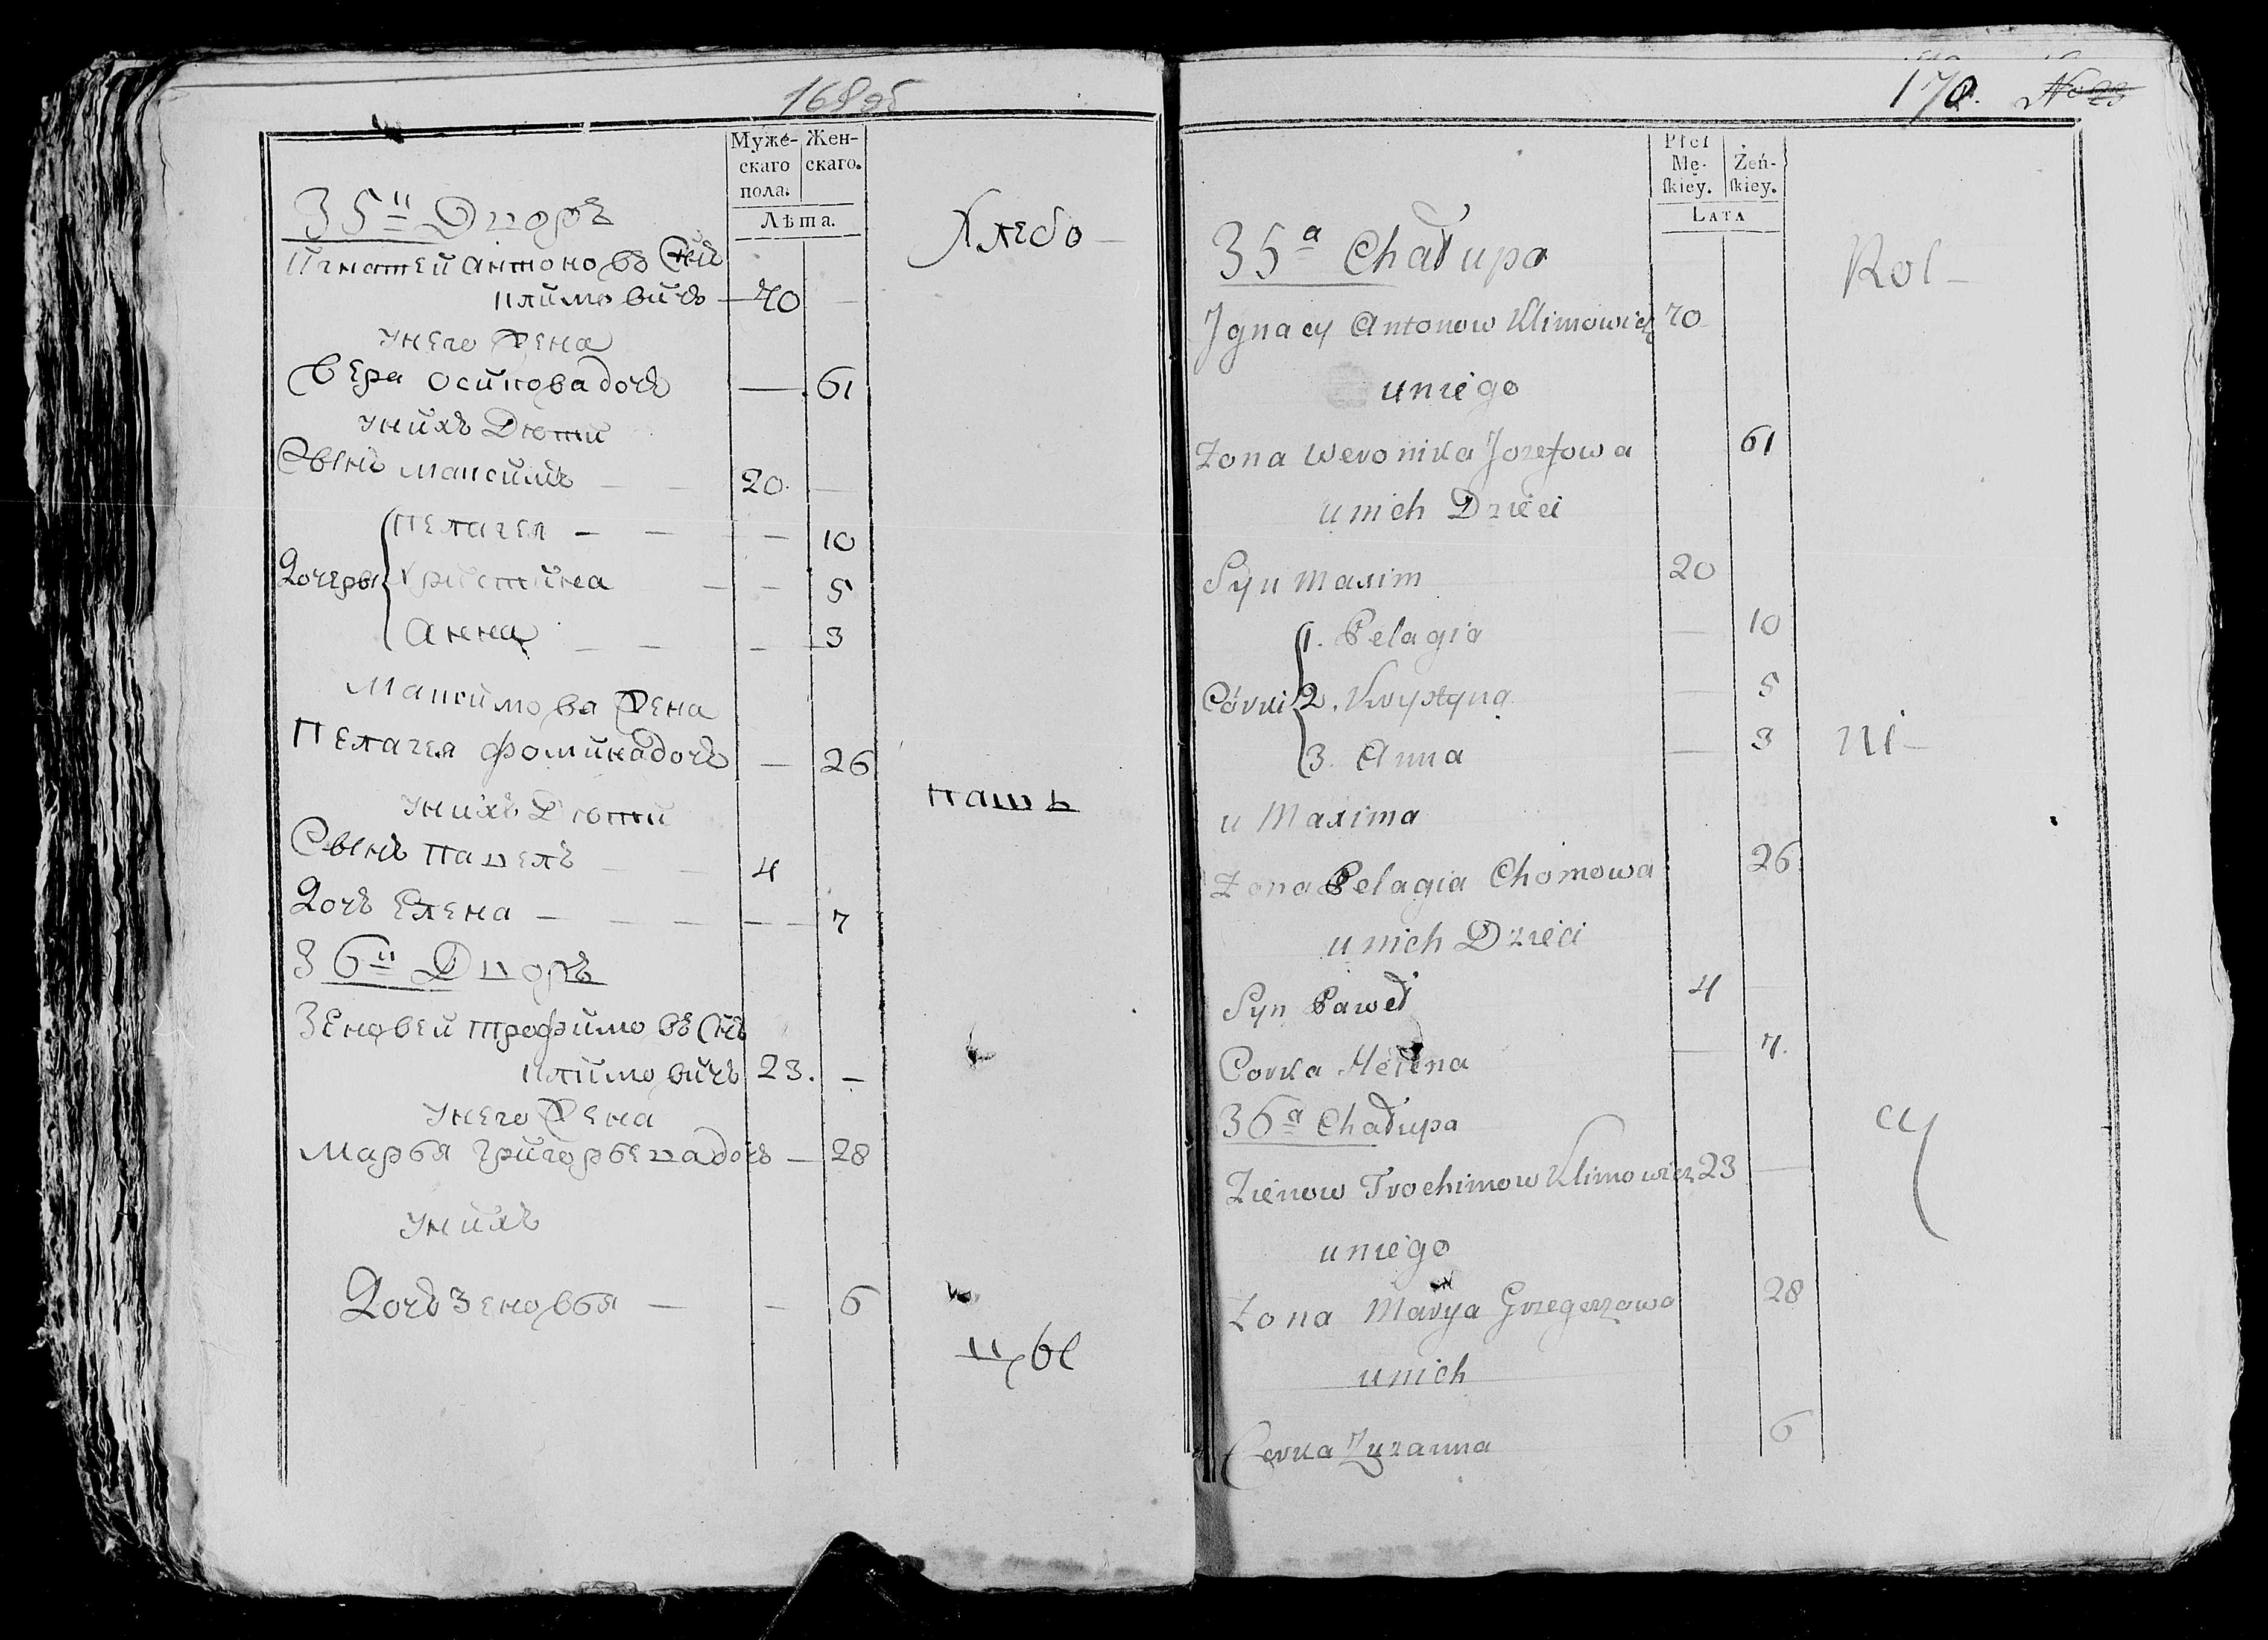 169 об
Муже-
скаго
пола.
Жен-
скаго.
Лѣта.
35й Дворъ
Хлебо-
Игнатей Антоновъ Снъ
Климовичъ — 70 —
У него Жена
Вера Осипова дочъ — 61
У нихъ Дѣти
Сынъ Максимъ — — 20 —
Дочеры
Пелагея — — — — 10
Христина — — 5
Анна — — — 3
Максимова Жена
Пелагея Фомина дочъ — 26
пашъ
У нихъ Дѣти
Сынъ Павелъ — — 4
Дочъ Елена — — — — — — 7
36й Дворъ
Зеновей Трофимовъ Снъ
Климовичъ 23. —
У него Жена
Марья Григорьева дочъ — 28
У нихъ
Дочь Зеновья — — 6
цы
170. No 23
Płci
Mę-
skiey.
Żeń-
skiey.
LATA
35a Chałupa
Rol-
Jgnacy Antonow Klimowicz 70
u niego
Zona Weronika Jozefowa 61
u nich Dzieci
Syn Maxim 20
Córki
1. Pelagia — 10
2. Krystyna — 5
3. Anna — 3
ni-
u Maxima
Zona Pelagia Chomowa 26.
u nich Dzieci
Syn Paweł 4 —
Corka Helena — 7.
36a Chałupa
cy
Zienow Trochimow Klimowicz 23 —
u niego
Zona Marya Grzegorzowa 28
u nich
Corka Zuzanna 6